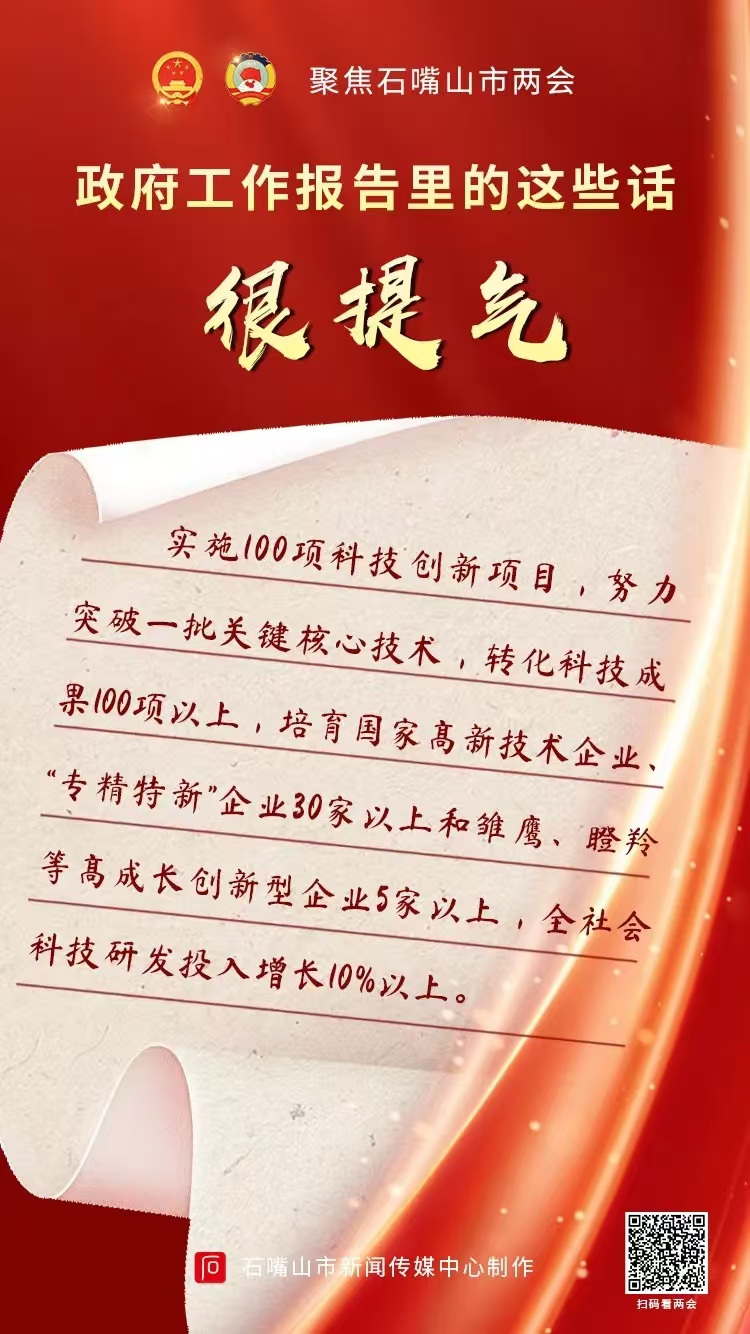 聚焦石嘴山市两会
政府工作报告里的这些话
很提气
实施100项科技创新项目，努力
突破一批关键核心技术，转化科技成
果100项以上，培育国家高新技术企业、
“专精特新”企业30家以上和雏鹰、瞪羚
等高成长创新型企业5家以上，全社会
科技研发投入增长10%以上。
石嘴山市新闻传媒中心制作
扫码看两会